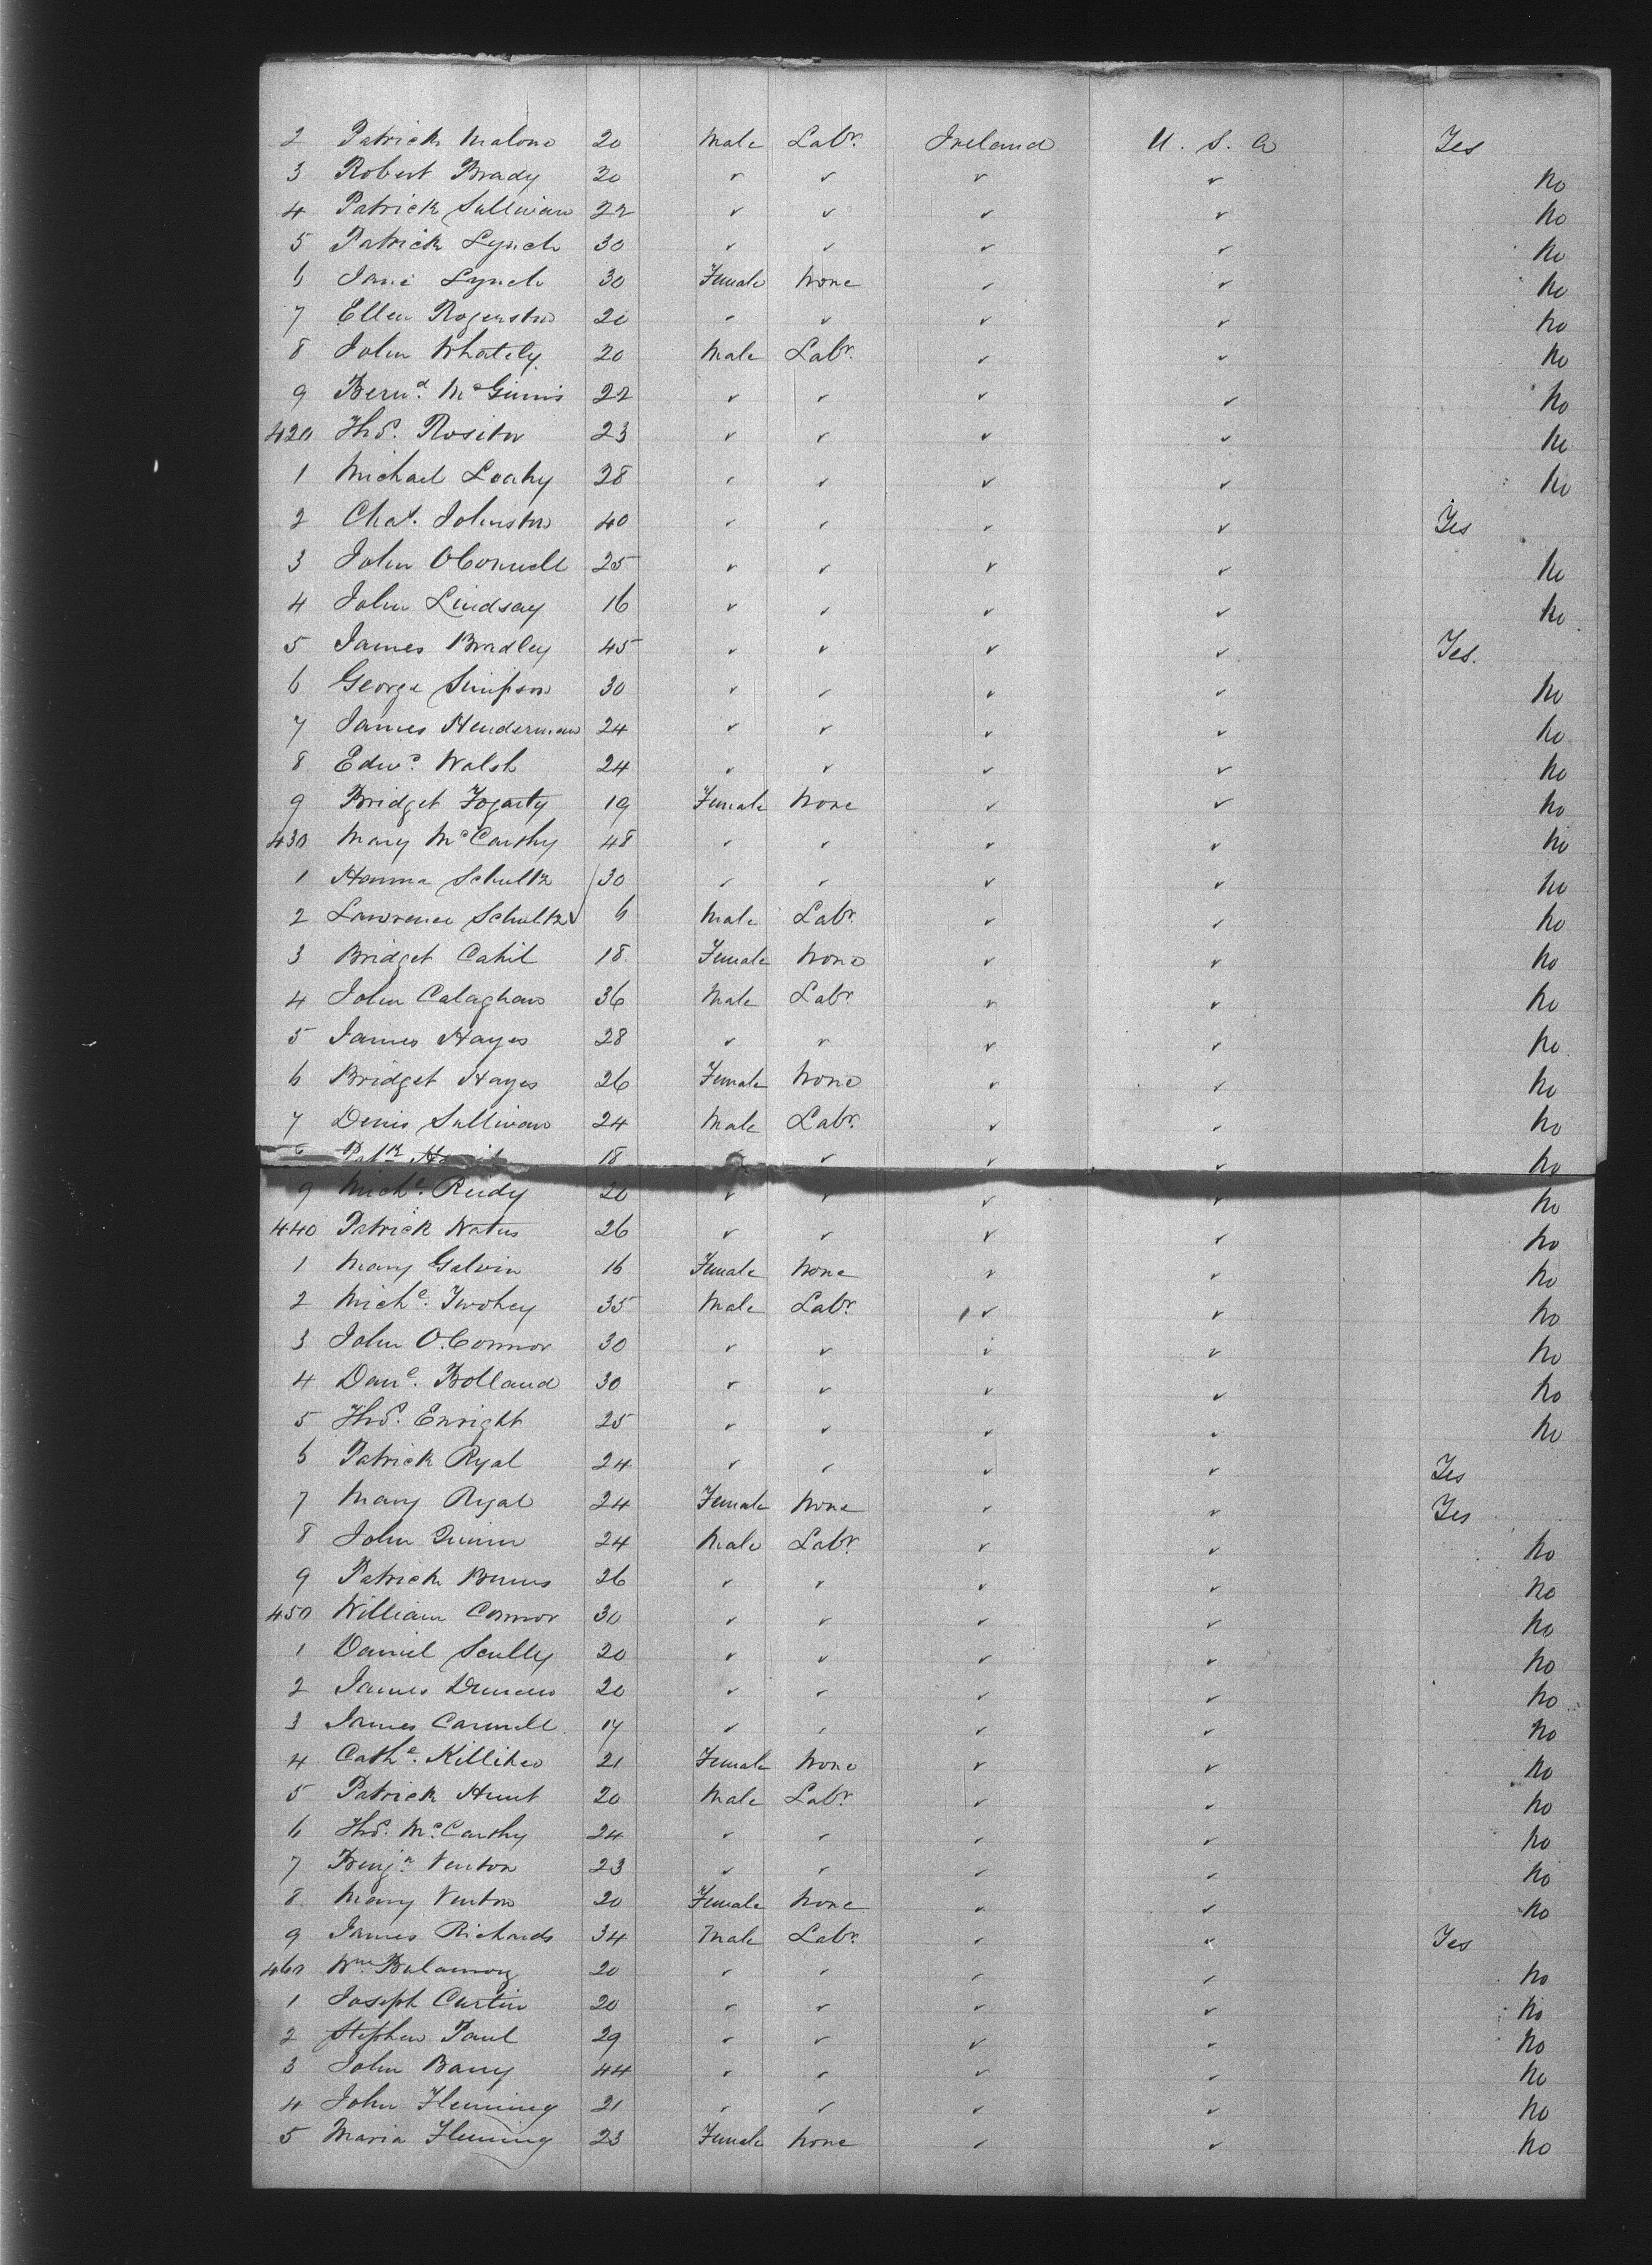 2 Patrick Malone 20 Male Labr. Ireland U. S. A Yes
3 Robert Brady 20 ✓ ✓ ✓ ✓ No
4 Patrick Sullivan 22 ✓ ✓ ✓ ✓ No
5 Patrick Lynch 30 ✓ ✓ ✓ ✓ No
6 Jane Lynch 30 Female None ✓ ✓ No
7 Ellen Rogerston 20 ✓ ✓ ✓ ✓ No
8 John Whately 20 Male Labr. ✓ ✓ No
9 Bernd. McGinnis 22 ✓ ✓ ✓ ✓ No
420 Thos. Rositer 23 ✓ ✓ ✓ ✓ No
1 Michael Leahy 28 ✓ ✓ ✓ ✓ No
2 Chas. Johnston 40 ✓ ✓ ✓ ✓ Yes
3 John OConnell 25 ✓ ✓ ✓ ✓ No
4 John Lindsay 16 ✓ ✓ ✓ ✓ No
5 James Bradley 45 ✓ ✓ ✓ ✓ Yes.
6 George Simpson 30 ✓ ✓ ✓ ✓ No
7 James Henderman 24 ✓ ✓ ✓ ✓ No
8 Edwd. Walsh 24 ✓ ✓ ✓ ✓ No
9 Bridget Fogarty 19 Female None ✓ ✓ No
430 Mary McCarthy 48 ✓ ✓ ✓ ✓ No
1 Hanna Schultz 30 ✓ ✓ ✓ ✓ No
2 Lawrence Schultz 6 Male Labr. ✓ ✓ No
3 Bridget Cahil 18 Female None ✓ ✓ No
4 John Calaghan 36 Male Labr. ✓ ✓ No
5 James Hayes 28 ✓ ✓ ✓ ✓ No
6 Bridget Hayes 26 Female None ✓ ✓ No
7 Denis Sullivan 24 Male Labr. ✓ ✓ No
Patk. 18 ✓ ✓ ✓ No
9 Michl. Reidy 20 ✓ ✓ ✓ ✓ No
440 Patrick Waters 26 ✓ ✓ ✓ ✓ No
1 Mary Galvin 16 Female None ✓ ✓ No
2 Michl. Twohey 35 Male Labr. ✓ ✓ No
3 John O.Connor 30 ✓ ✓ ✓ ✓ No
4 Danl. Bolland 30 ✓ ✓ ✓ ✓ No
5 Thos. Enright 25 ✓ ✓ ✓ ✓ No
6 Patrick Ryal 24 ✓ ✓ ✓ ✓ Yes
7 Mary Ryal 24 Female None ✓ ✓ Yes
8 John Quinn 24 Male Labr. ✓ ✓ No
9 Patrick Burns 26 ✓ ✓ ✓ ✓ No
450 William Connor 30 ✓ ✓ ✓ ✓ No
1 Daniel Scully 20 ✓ ✓ ✓ ✓ No
2 James 20 ✓ ✓ ✓ ✓ No
3 James 17 ✓ ✓ ✓ ✓ No
4 Cathe. Killiheo 21 Female None ✓ ✓ No
5 Patrick Hunt 20 Male Labr. ✓ ✓ No
6 Thos. McCarthy 24 ✓ ✓ ✓ ✓ No
7 Benjn. Venton 23 ✓ ✓ ✓ ✓ No
8 Mary Venton 20 Female None ✓ ✓ No
9 James Richards 34 Male Labr. ✓ ✓ Yes
460 Wm. 20 ✓ ✓ ✓ ✓ No
1 Joseph Curtin 20 ✓ ✓ ✓ ✓ No
2 Stephen Paul 29 ✓ ✓ ✓ ✓ No
3 John Barry 44 ✓ ✓ ✓ ✓ No
4 John Fleming 21 ✓ ✓ ✓ ✓ No
5 Maria Fleming 23 Female None ✓ ✓ No